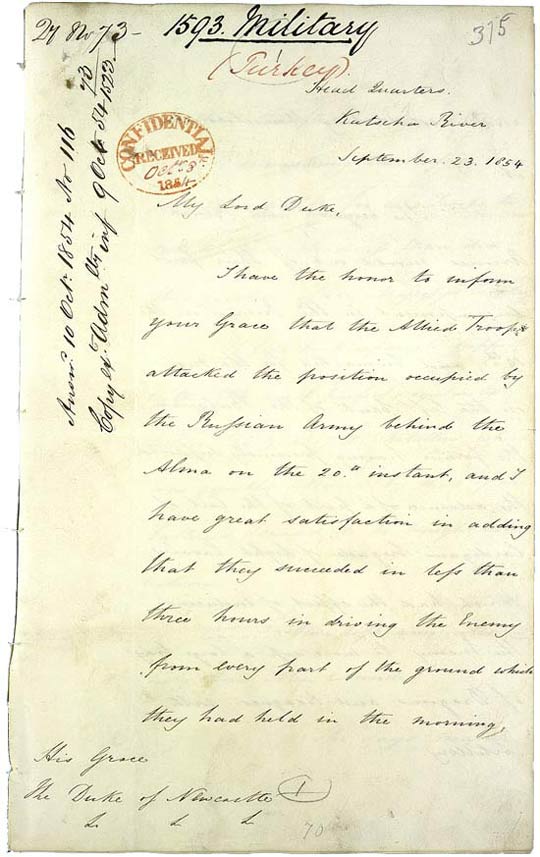 Dy No 73 - 1593. Military 375
(Turkey).
Head Quarters.
Katscha River
September. 23. 1854
CONFIDENTIAL
RECEIVED
Oct 8
1854
Answd. 10 Octr. 1854 No 116
Copy exd. Admlty inf 9 Oct 54
My Lord Duke,
I have the honor to inform
your Grace that the Allied Troops
attacked the position occupied by
the Russian Army behind the
Alma on the 20.th instant, and I
have great satisfaction in adding
that they succeeded in less than
three hours in driving the Enemy
from every part of the ground which
they had held in the morning,
His Grace
The Duke of Newcastle
&. &. &.
1
70